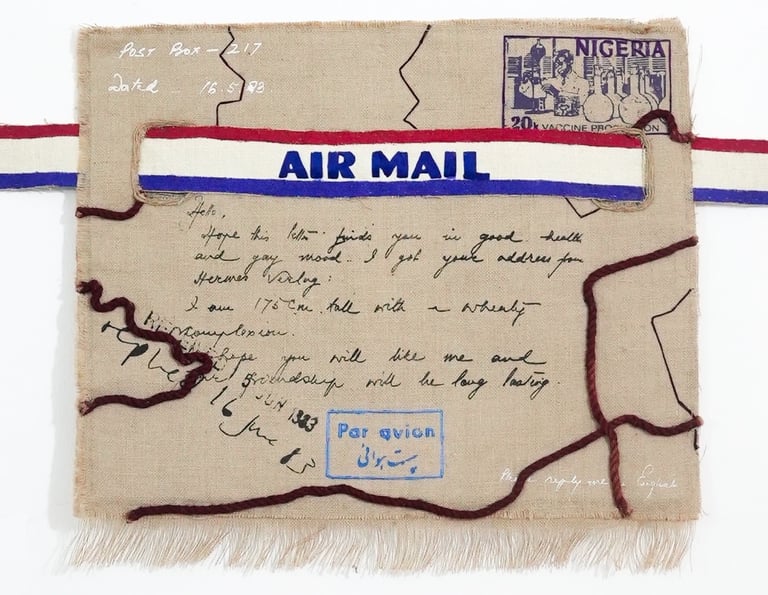 Post Box - 217
Dated - 16.5.83.
NIGERIA
20k VACCINE PRO
ON
AIR MAIL
Hello,
Hope this letter finds you in good health
and gay mood. I got your address from
Hermes Verlag:
I am 175 Cm. tall with a wheaty
complexion.
hope you will like me and
friendship will be long lasting.
JUN 1983
16 June 83
Par avion
پست ہوائی
reply me English